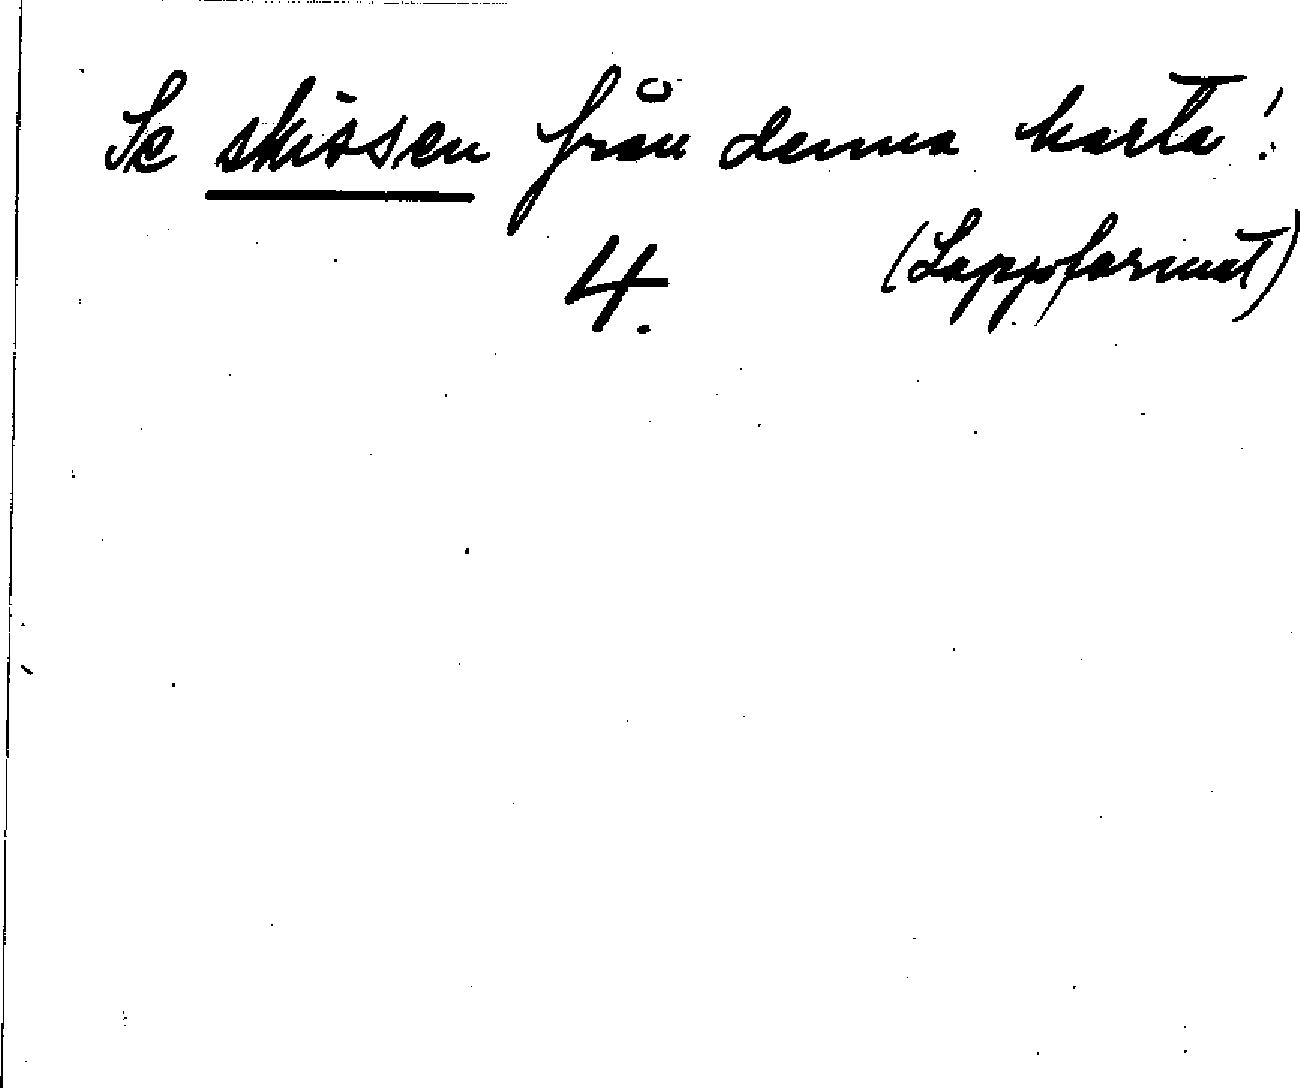 Se skissen från denna karta!
4.
(Lappformat)